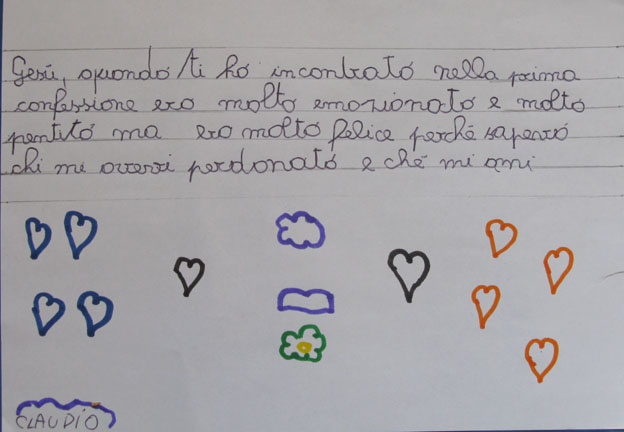 Gesù, quando ti ho incontrato nella prima
confessione ero molto emozionato e molto
pentito ma ero molto felice perché sapevo
chi mi avevi perdonato e ché mi ami
CLAUDIO